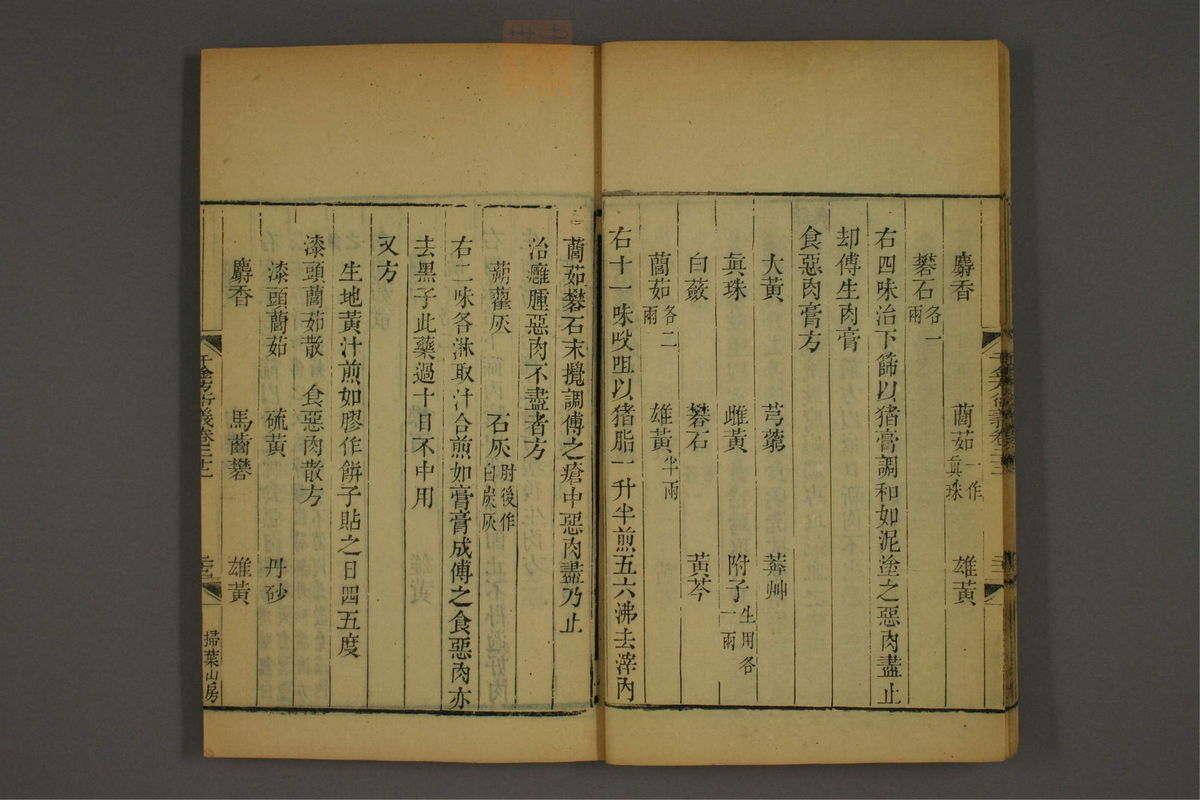 麝香　䕡茹一作眞珠　雄黃
礬石各一兩
右四味治下篩以猪膏調和如泥塗之惡肉盡止
却傅生肉膏
食惡肉膏方
大黃　芎藭　莽艸
眞珠　雌黃　附子生用各一兩
白蘞　礬石　黃芩
䕡茹各二兩　雄黃半兩
右十一味㕮咀以猪脂一升半煎五六沸去滓內
䕡茹礬石末攪調傅之瘡中惡肉盡乃止
治癰腫惡肉不盡者方
蒴藋灰　石灰肘後作白炭灰
右二味各淋取汁合煎如膏膏成傅之食惡肉亦
去黑子此藥過十日不中用
又方
生地黃汁煎如膠作餅子貼之日四五度
漆頭䕡茹散　食惡肉散方
漆頭䕡茹　硫黃　丹砂
麝香　馬齒礬　雄黃
千金方衍義卷二十二
掃葉山房